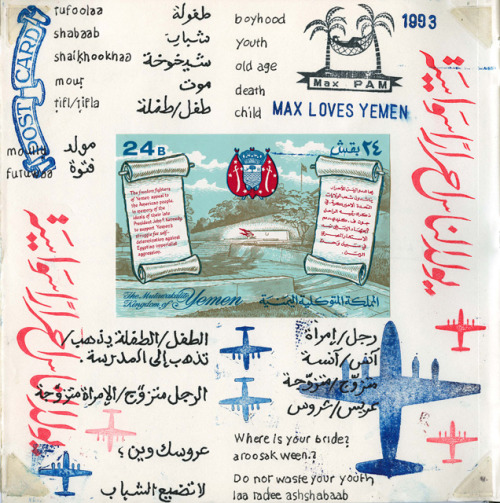 POST CARD
rufoolaa طفولة boyhood
shabaab شباب youth
shaikhookhaa شيخوخة old age
mout موت death
tifl/tifla طفل/طفلة child
Max PAM
1993
MAX LOVES YEMEN
مولد
futuwaa فتوة
24 B
٢٤ بقش
The freedom fighters
of Yemen appeal to
the American people,
in memory of the
ideals of their late
President John F. Kennedy
to support Yemen's
struggle for self-
determination against
Egyptian imperialist
aggression.
The Mutawakelite
Kingdom of Yemen
المملكة المتوكلية اليمنية
الطفل/الطفلة يذهب/
تذهب إلى المدرسة.
الرجل متزوج/الإمراة متزوجة
عروسك وين؟
لا تضيع الشباب
رجل/إمراة
آنس/آنسة
متزوج/متزوجة
عريس/عروس
Where is your bride?
aroosak ween?
Do not waste your youth
laa tadee ashshabaab